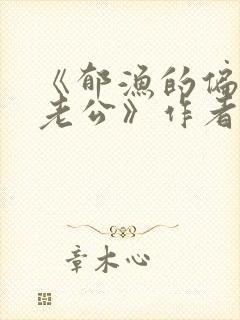 《郁渔的偏
老公》作者
章木心